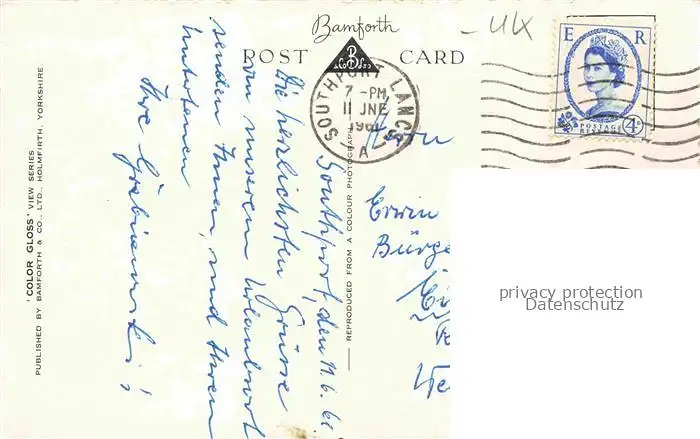 Bamforth
POST CARD
UK
E R
POSTAGE
REVENUE
4D
SOUTHPORT LANCS
7 - PM
11 JNE
1961
A
Southport, den 11.6.61.
Die herzlichsten Grüsse
von unserem Urlaubsort
senden Ihnen, und Ihren
Ihre
Herrn
Erwin
Bürge
REPRODUCED FROM A COLOUR PHOTOGRAPH
'COLOR GLOSS' VIEW SERIES
PUBLISHED BY BAMFORTH & CO., LTD., HOLMFIRTH, YORKSHIRE
privacy protection
Datenschutz